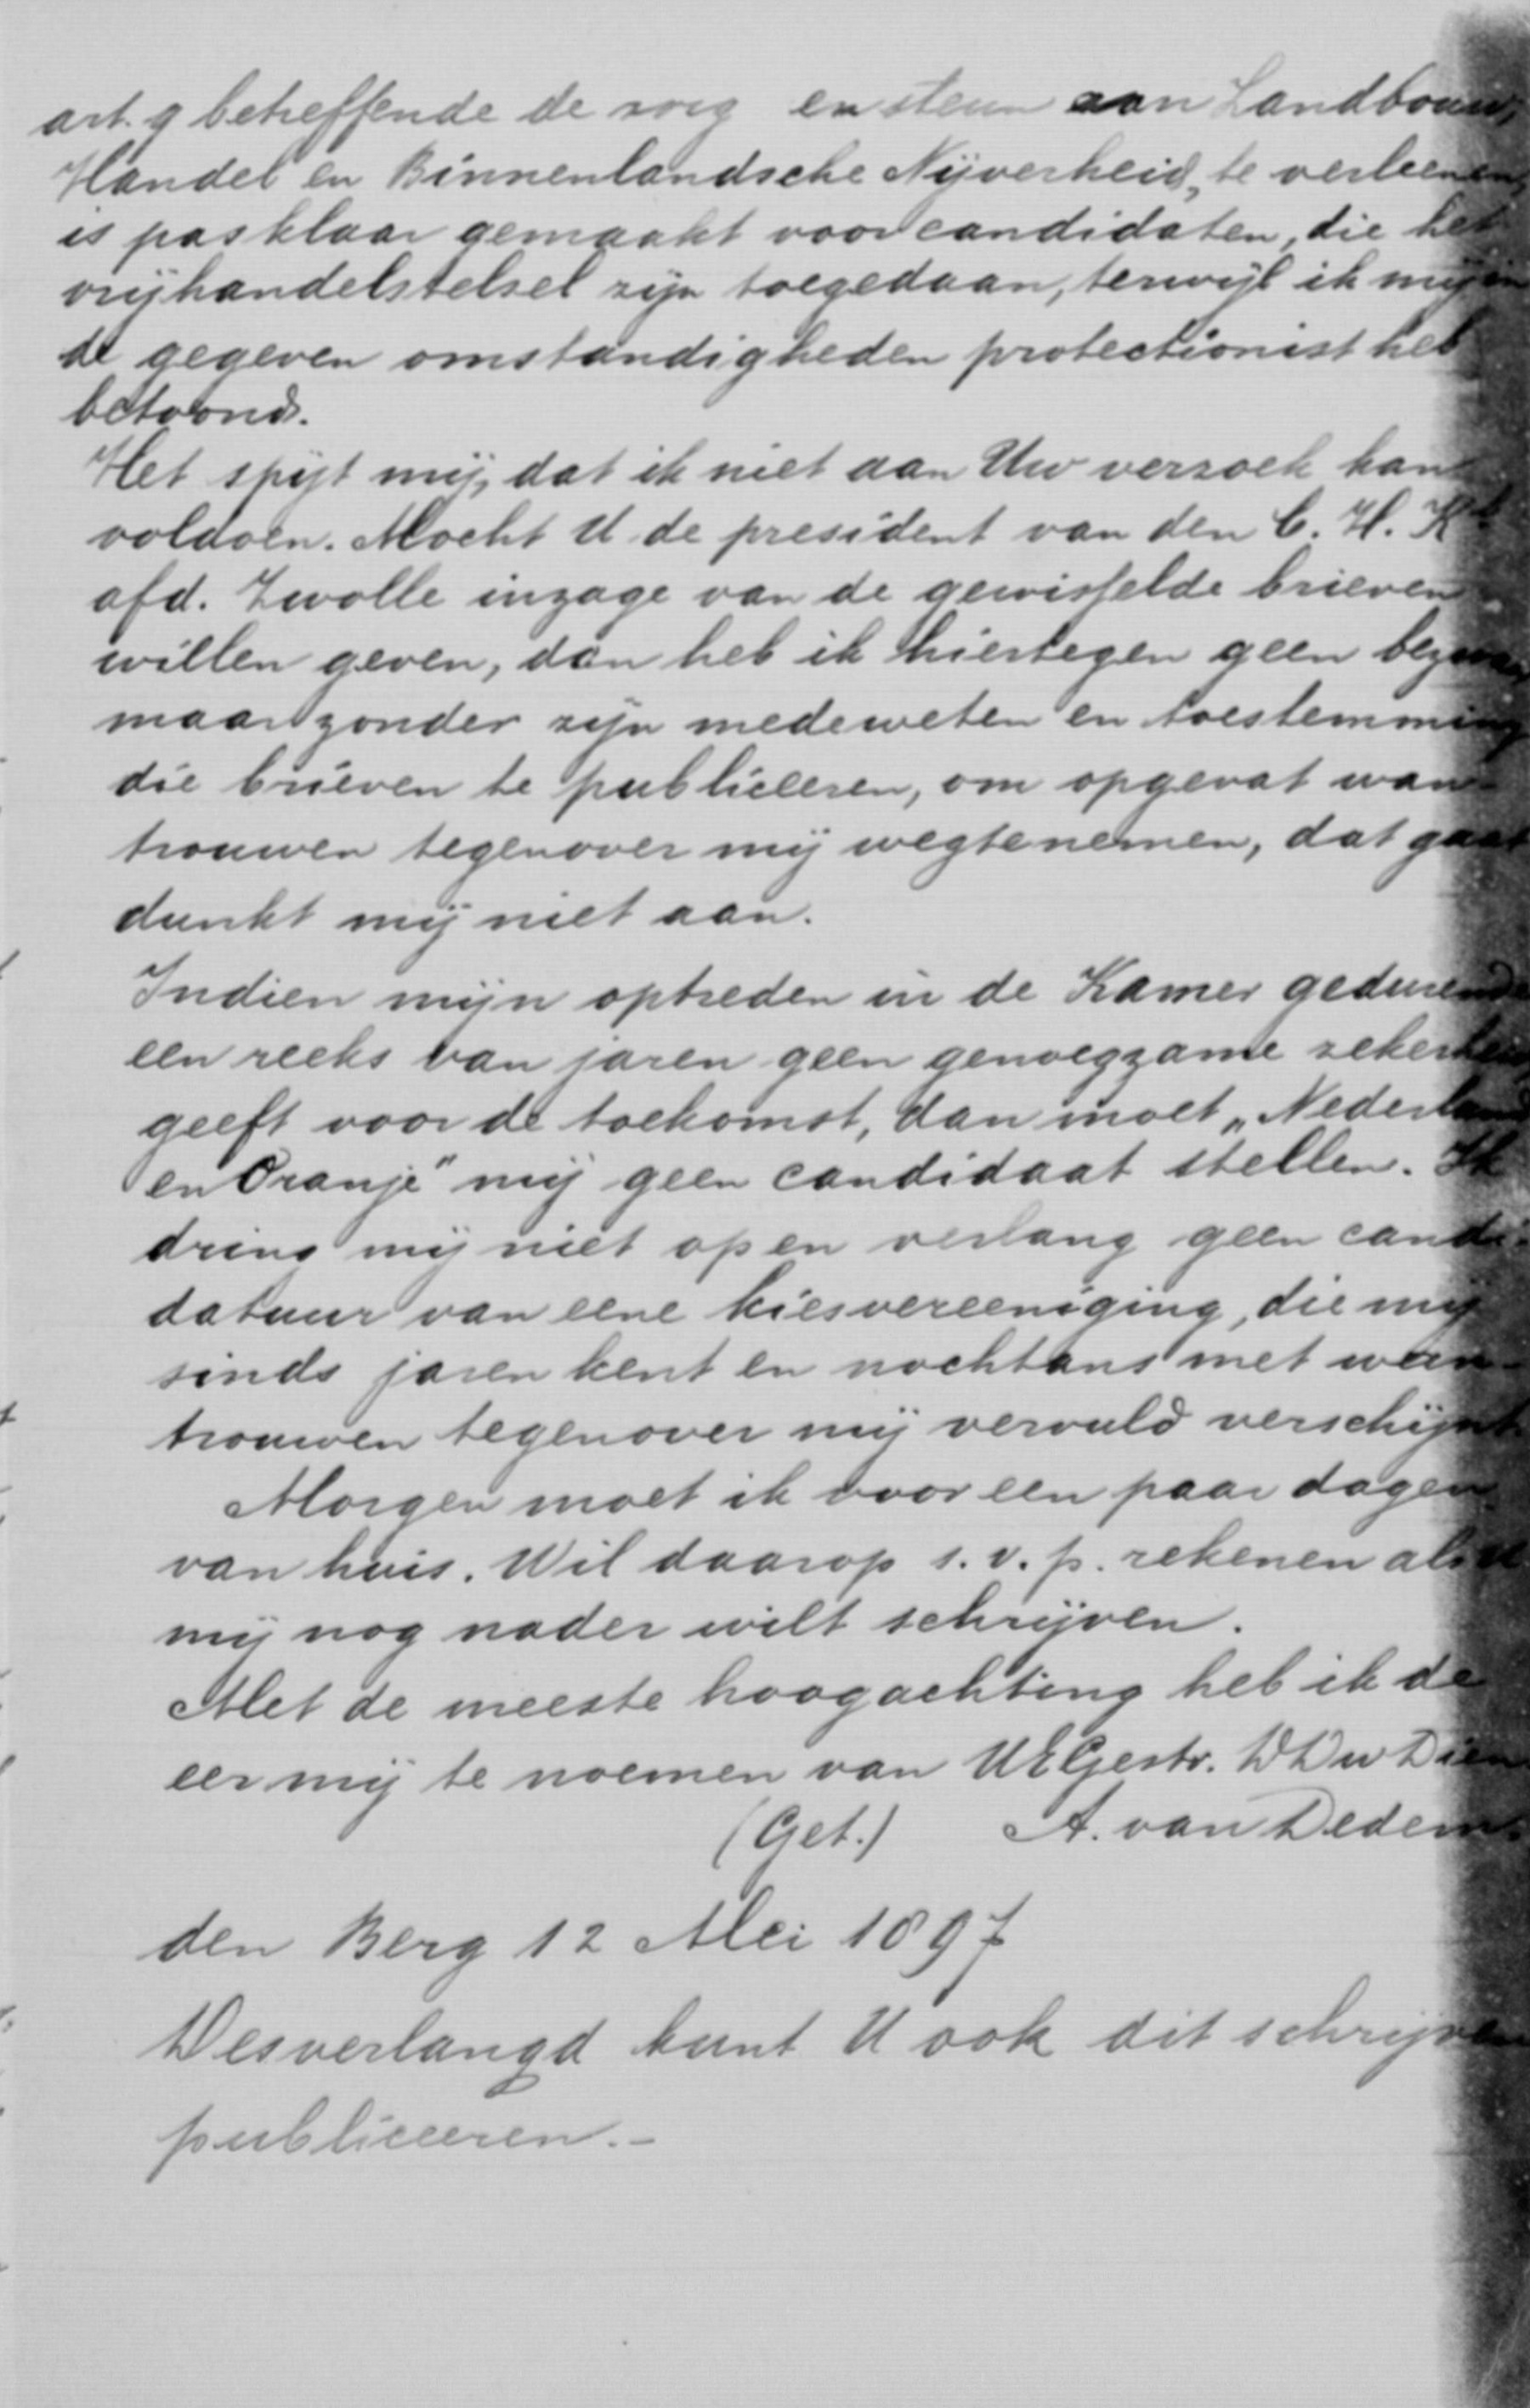 art. 9 betreffende de zorg en steun aan Landbouw,
Handel en Binnenlandsche Nijverheid, te verleenen,
is pasklaar gemaakt voor candidaten, die het
vrijhandelstelsel zijn toegedaan, terwijl ik mij in
de gegeven omstandigheden protectionist heb
betoond.
Het spijt mij, dat ik niet aan Uw verzoek kan
voldoen. Mocht U de president van den C. H. K
afd. Zwolle inzage van de gewisselde brieven
willen geven, dan heb ik hiertegen geen
maar zonder zijn medeweten en toestemming
die brieven te publiceeren, om opgevat wan-
trouwen tegenover mij wegtenemen, dat gaat
dunkt mij niet aan.
Indien mijn optreden in de Kamer gedurende
een reeks van jaren geen genoegzame zekerheid
geeft voor de toekomst, dan moet „Nederland
en Oranje" mij geen candidaat stellen. Ik
dring mij niet op en verlang geen candi-
datuur van eene kiesvereeniging, die mij
sinds jaren kent en nochtans met wan-
trouwen tegenover mij vervuld verschijnt.
Morgen moet ik voor een paar dagen
van huis. Wil daarop s. v. p. rekenen als U
mij nog nader wilt schrijven.
Met de meeste hoogachting heb ik de
eer mij te noemen van UEGestr. DDw Dien
(Get.) A. van Dedem.
den Berg 12 Mei 1897
Desverlangd kunt U ook dit schrijven
publiceeren.-